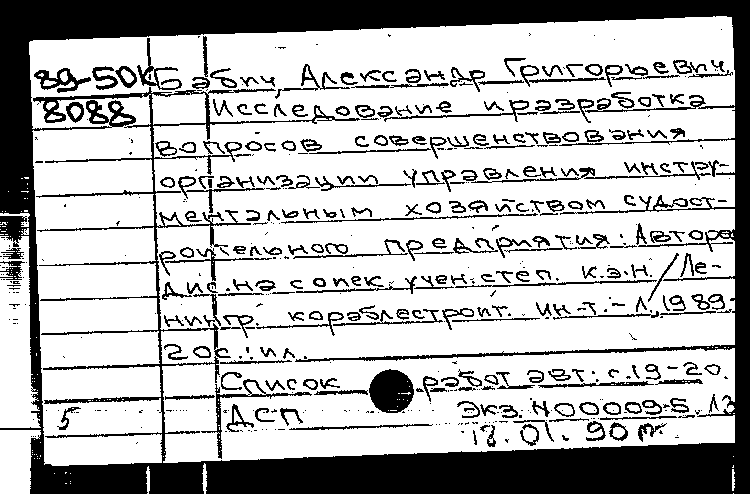 89-50К Бабич, Александр Григорьевич.
8088 Исследование и разработка
вопросов совершенствования
организации управления инстру-
ментальным хозяйством судост-
роительного предприятия: Авторе
дис. на соиск. учен. степ. к.э.н. / Ле-
нингр. кораблестроит. ин-т. - Л, 1989-
20с.: ил.
Список работ авт.: с.19-20.
5 ДСП Экз. N00009-5. 13
18.01.90